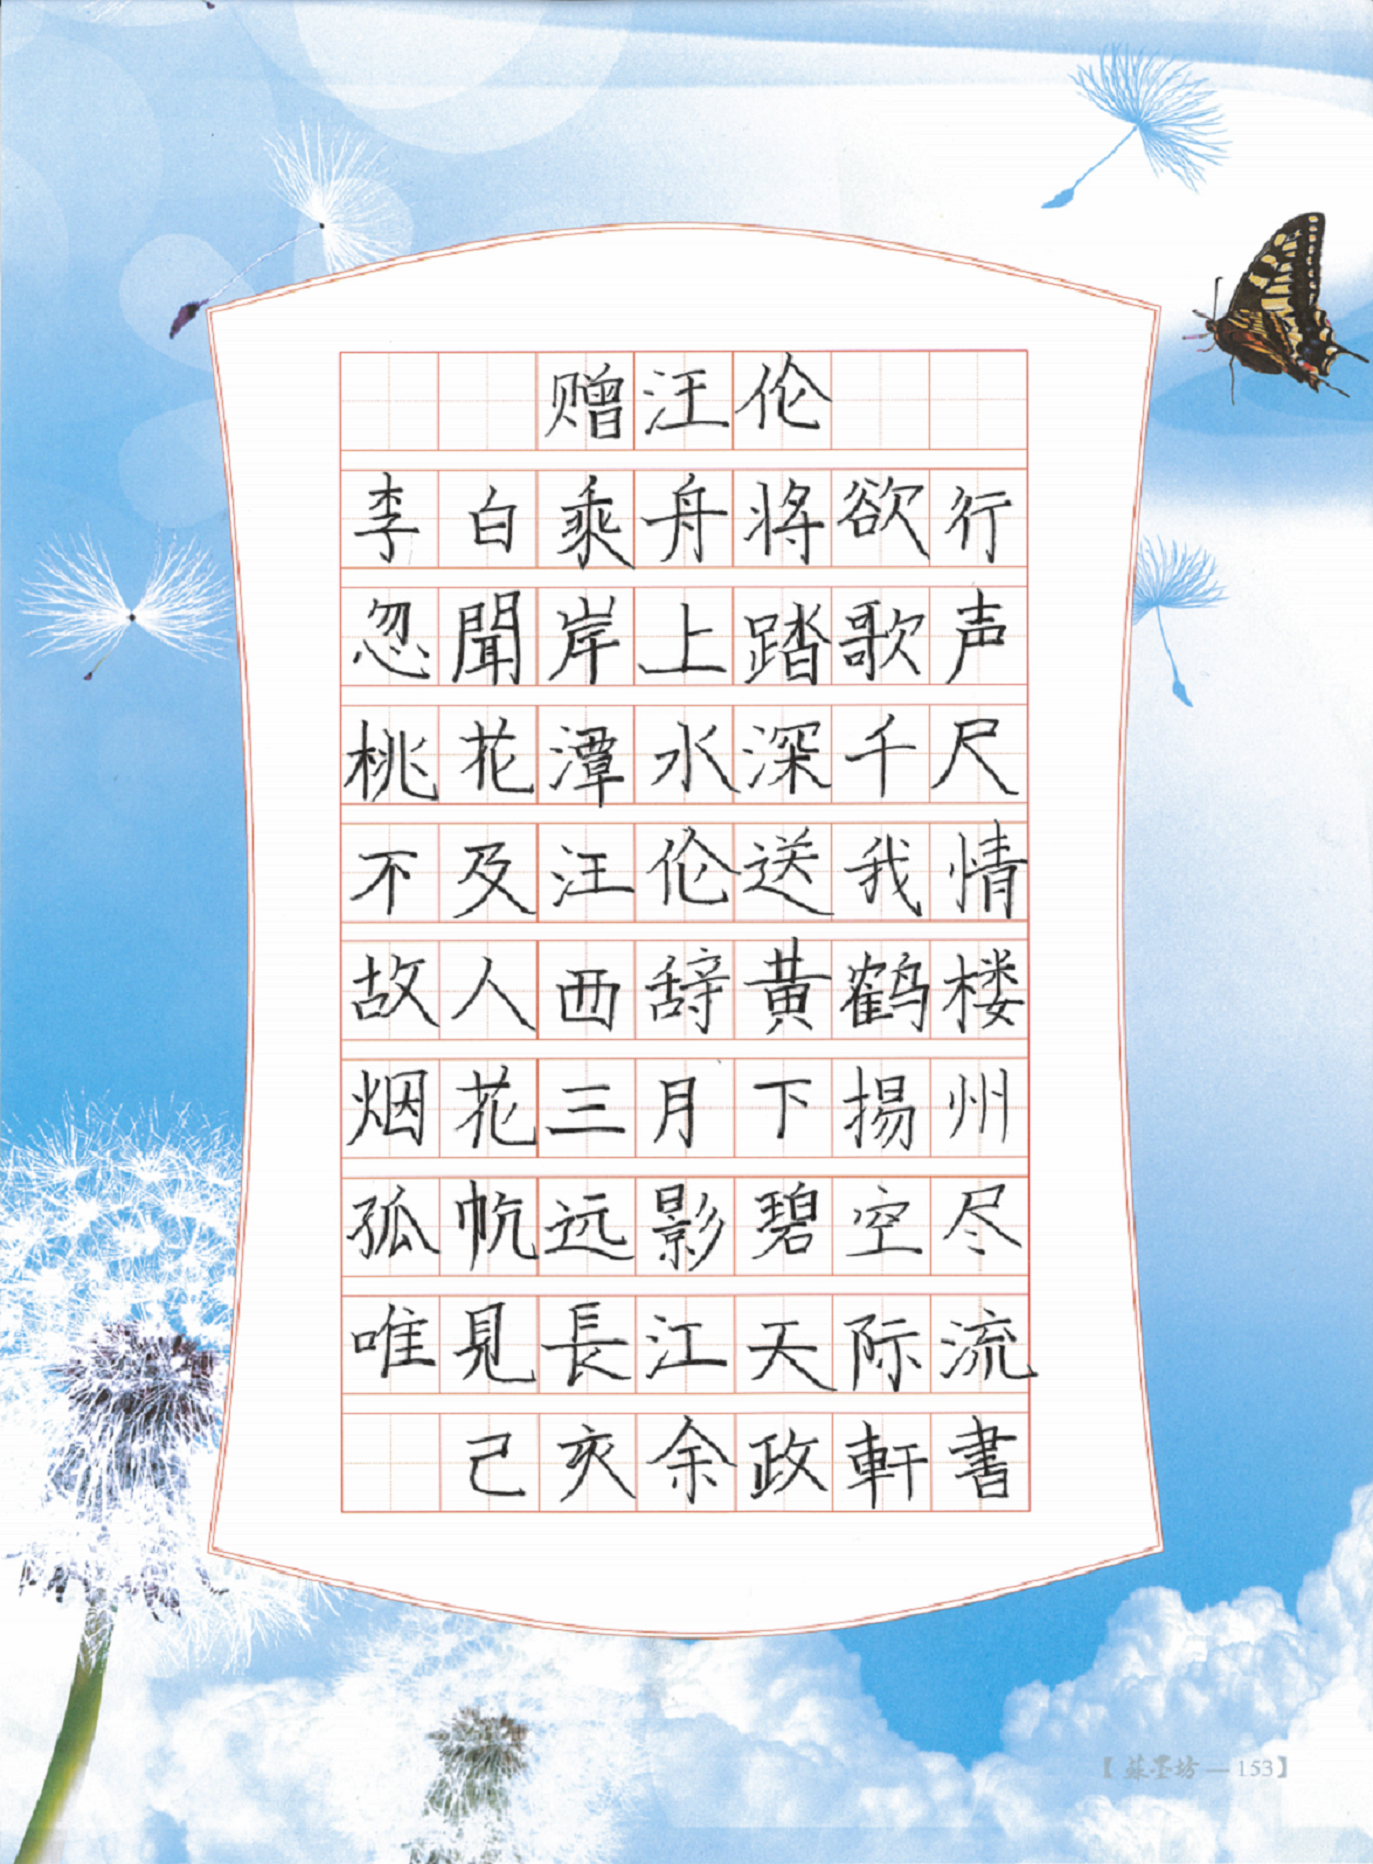 赠汪伦
李白乘舟将欲行
忽聞岸上踏歌声
桃花潭水深千尺
不及汪伦送我情
故人西辞黄鹤楼
烟花三月下揚州
孤帆远影碧空尽
唯見長江天际流
己亥余政軒書
【蘇墨坊—153】